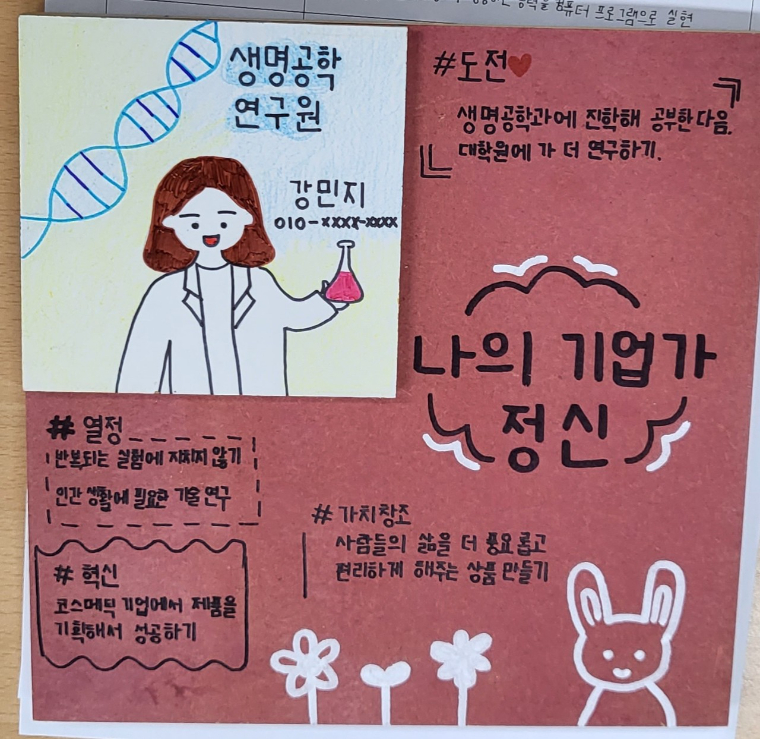 프로그램으로 실현
생명공학
연구원
강민지
010-xxxx-xxxx
#도전
생명공학과에 진학해 공부한 다음,
대학원에 가 더 연구하기.
나의 기업가
정신
# 열정
반복되는 실험에 지치지 않기
인간 생활에 필요한 기술 연구
# 혁신
코스메틱 기업에서 제품을
기획해서 성공하기
# 가치창조
사람들의 삶을 더 풍요롭고
편리하게 해주는 상품 만들기